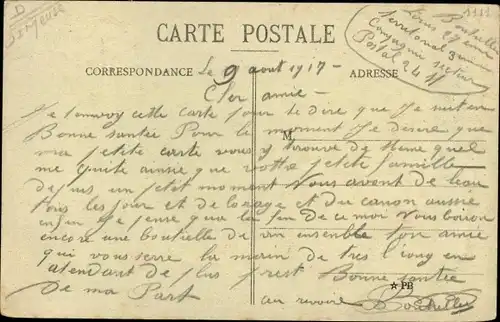 D
St Meuse
1111
Louis Bouteiller
27 eme
territorial 9 eme
Compagnie secteur
Postal 24
CARTE POSTALE
CORRESPONDANCE
ADRESSE
Le 9 aout 1917 -
Cher amie -
Je tenvoy cette carte pour te dire que Je suit en
Bonne santée Pour le moment Je desire que
M
ma petite carte vous y trouve de meme quel
me quite aussie que votre petite famille
depuis un petit moment Nous avont de leau
tous les jour et de lorage et du canon aussie
enfin Je pense que la fin de ce moi Nous boiron
encore une bouteille de vin ensemble ton amie
qui vous serre la main de tres loing en
atendant de plus prest Bonne santée
de ma Part
au revoire
PB